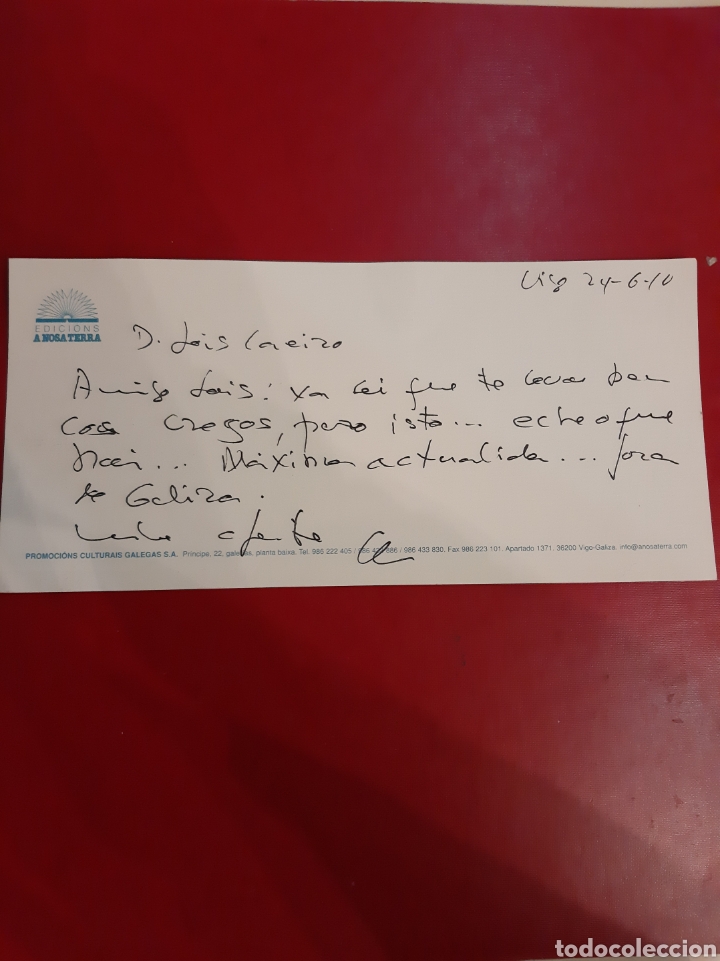 Vigo 24-6-10
EDICIÓNS
A NOSA TERRA
D. Lois Caeiro
Amigo Lois: xa sei que te levas ben
cos cregos, pero isto... eche o que
hai... Máxima actualida... fora
de Galiza.
PROMOCIÓNS CULTURAIS GALEGAS S.A. Príncipe, 22, galerías, planta baixa. Tel. 986 222 405 / 986 433 886 / 986 433 830. Fax 986 223 101. Apartado 1371. 36200 Vigo-Galiza. info@anosaterra.com
todocoleccion